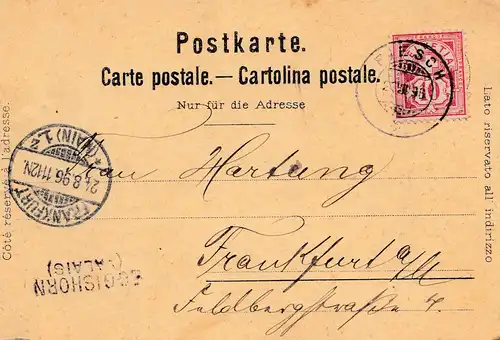 Postkarte.
Carte postale. — Cartolina postale.
Nur für die Adresse
Côté réservé à l'adresse.
Lato riservato all indirizzo
FIESCH
FRANKFURT
24.8.96 11-12N.
(MAIN) 1
Frau Hartung
Frankfurt a/M
Feldbergstraße 4.
EGGISHORN
(VALAIS)